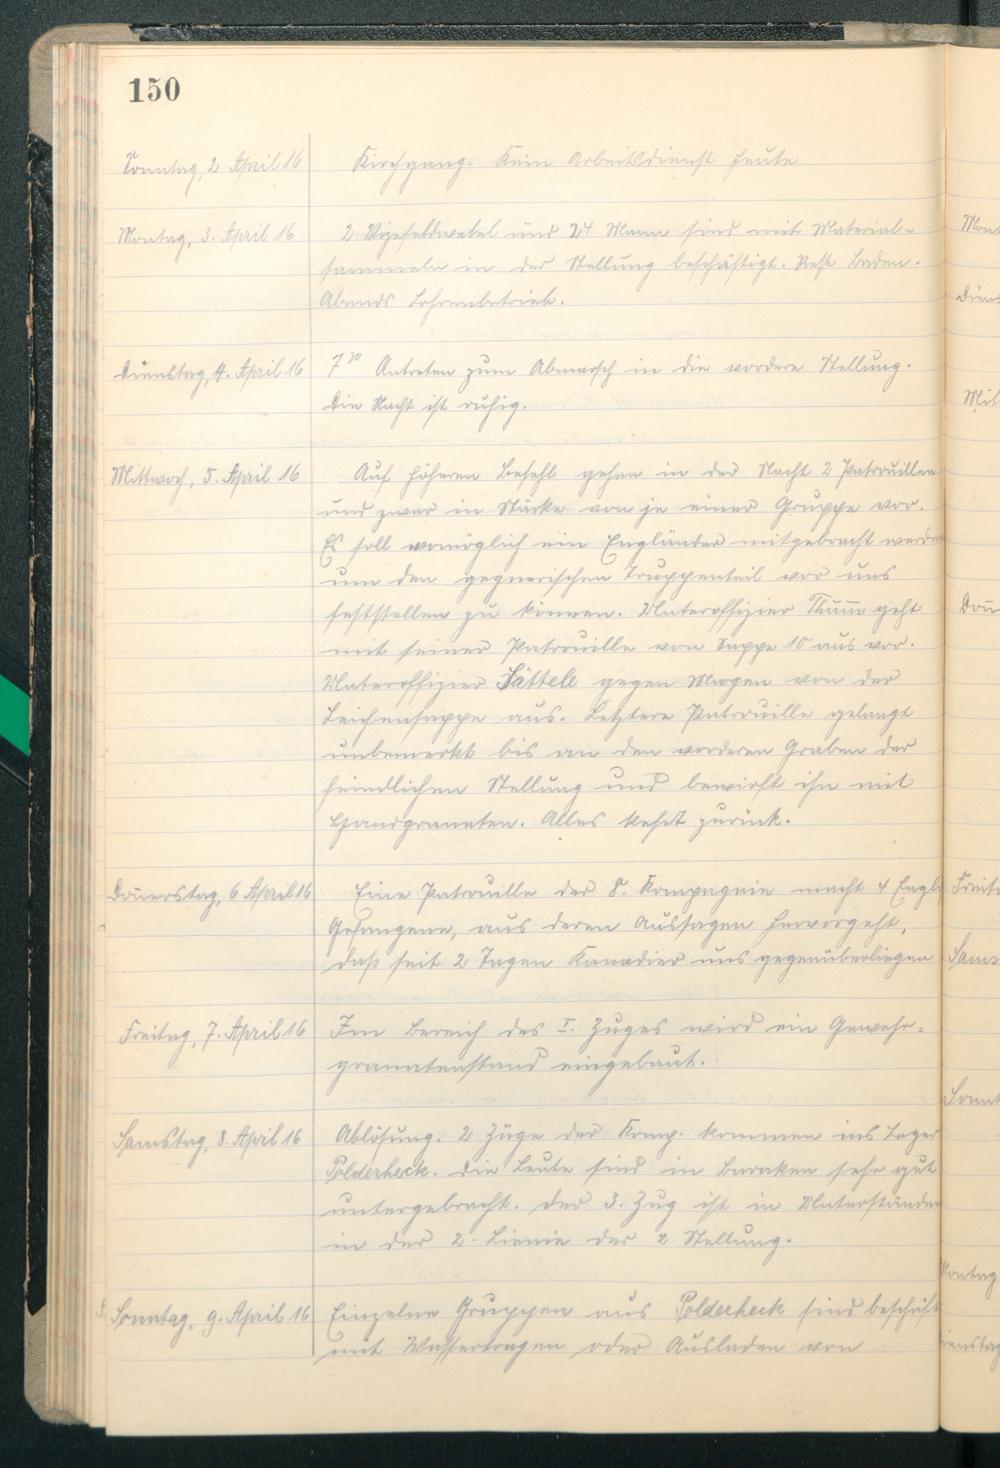 150
Sonntag, 2 April 16 Kirchgang. Kein Arbeitsdienst heute
Montag, 3. April 16 2 Vizefeldwebel und 24 Mann sind mit Material-
sammeln in der Stellung beschäftigt. Rest Baden.
Abends
Dienstag, 4. April 16 7³⁰ Antreten zum Abmarsch in die vordere Stellung.
Die Nacht ist ruhig.
Mittwoch, 5. April 16 Auf höheren Befehl gehen in der Nacht 2 Patrouillen
und zwar in Stärke von je einer Gruppe vor.
Es soll womöglich ein Engländer mitgebracht werden
um den gegnerischen Truppenteil vor uns
feststellen zu können. Unteroffizier Thum̄ geht
mit seiner Patrouille von Sappe 10 aus vor.
Unteroffizier Sättele gegen Morgen von der
Leichensappe aus. Letztere Patrouille gelangt
unbemerkt bis an den vorderen Graben der
feindlichen Stellung und bewirft ihn mit
Handgranaten. Alles kehrt zurück.
Don̄erstag, 6 April 16 Eine Patrouille der 8. Kompagnie macht 4 Engl.
Gefangene, aus deren Aussagen hervorgeht,
daß seit 2 Tagen Kanadier uns gegenüberliegen
Freitag, 7. April 16 Im Bereich des I. Zuges wird ein Gewehr-
granatenstand eingebaut.
Samstag, 8. April 16 Ablösung. 2 Züge der Komp. kommen ins Lager
Polderheck. Die Leute sind in Baraken sehr gut
untergebracht. Der 3. Zug ist in Unterständen
in der 2. Lienie der 2 Stellung.
Sonntag, 9. April 16 Einzelne Gruppen aus Polderheck sind beschäft
mit Wassertragen oder Ausladen von